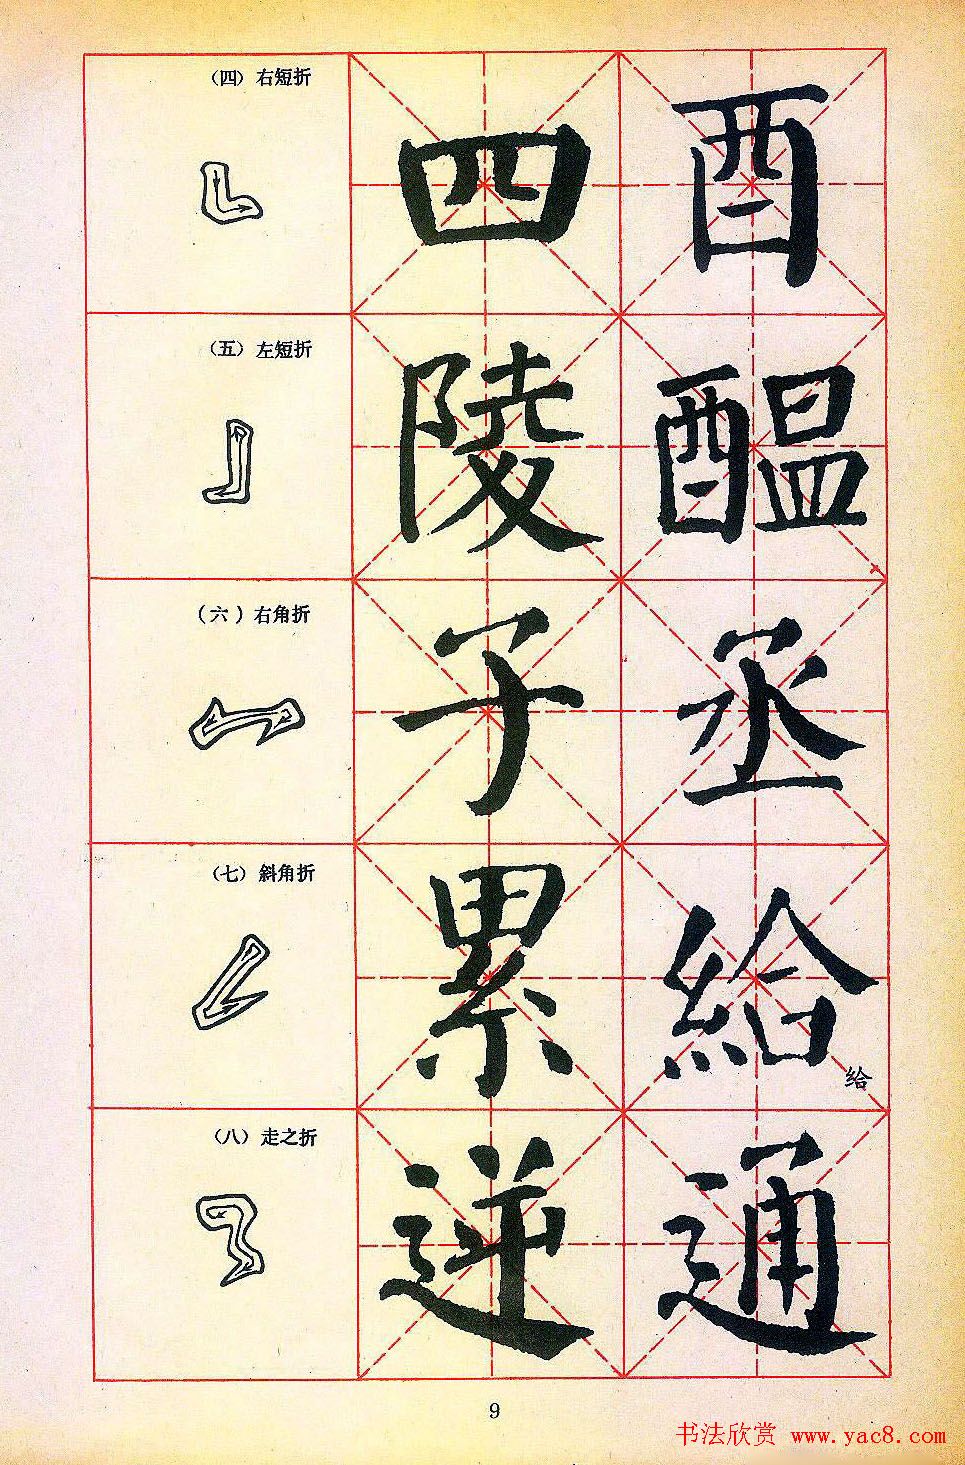 （四）右短折
四 酉
（五）左短折
陵 醖
（六）右角折
子 丞
（七）斜角折
累 給
给
（八）走之折
逆 通
9
书法欣赏 www.yac8.com